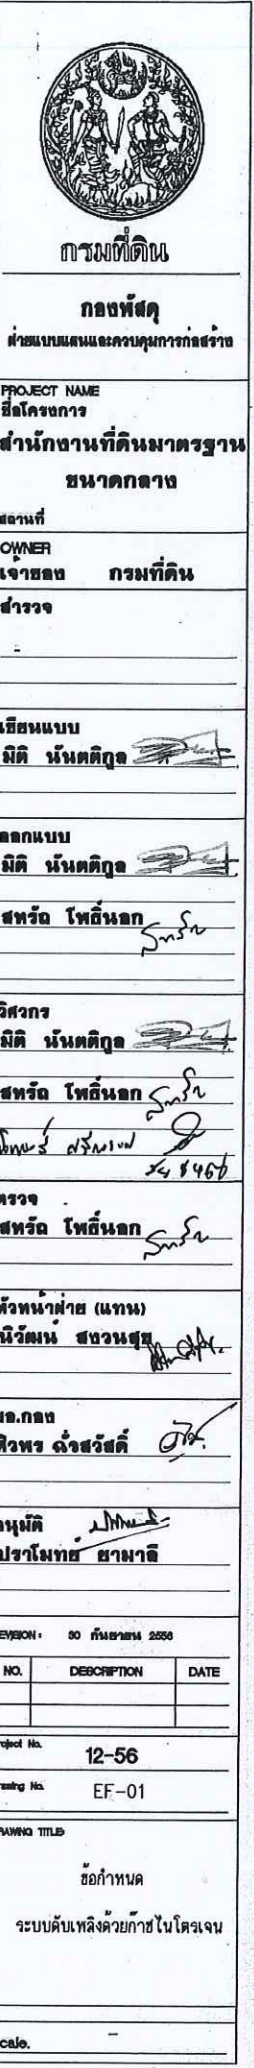 กรมที่ดิน
กองพัสดุ
ฝ่ายแบบแผนและควบคุมการก่อสร้าง
PROJECT NAME
ชื่อโครงการ
สำนักงานที่ดินมาตรฐาน
ขนาดกลาง
สถานที่
OWNER
เจ้าของ กรมที่ดิน
สำรวจ
-
เขียนแบบ
มิติ นันตติกูล
ออกแบบ
มิติ นันตติกูล
สหรัถ โพธิ์นอก
วิศวกร
มิติ นันตติกูล
สหรัถ โพธิ์นอก
ตรวจ
สหรัถ โพธิ์นอก
หัวหน้าฝ่าย (แทน)
นิวัฒน์ สงวนสุข
ผอ.กอง
ศิวพร ฉ่ำสวัสดิ์
อนุมัติ
ปราโมทย์ ยามาลี
REVISION : 30 กันยายน 2556
NO. DESCRIPTION DATE
Project No. 12-56
Drawing No. EF-01
DRAWING TITLE
ข้อกำหนด
ระบบดับเพลิงด้วยก๊าซไนโตรเจน
Scale. -